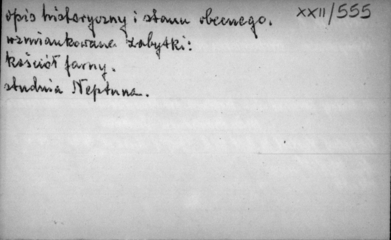 opis historyczny i stanu obecnego.
XXII/555
wzmiankowane zabytki:
kościół farny.
studnia Neptuna.